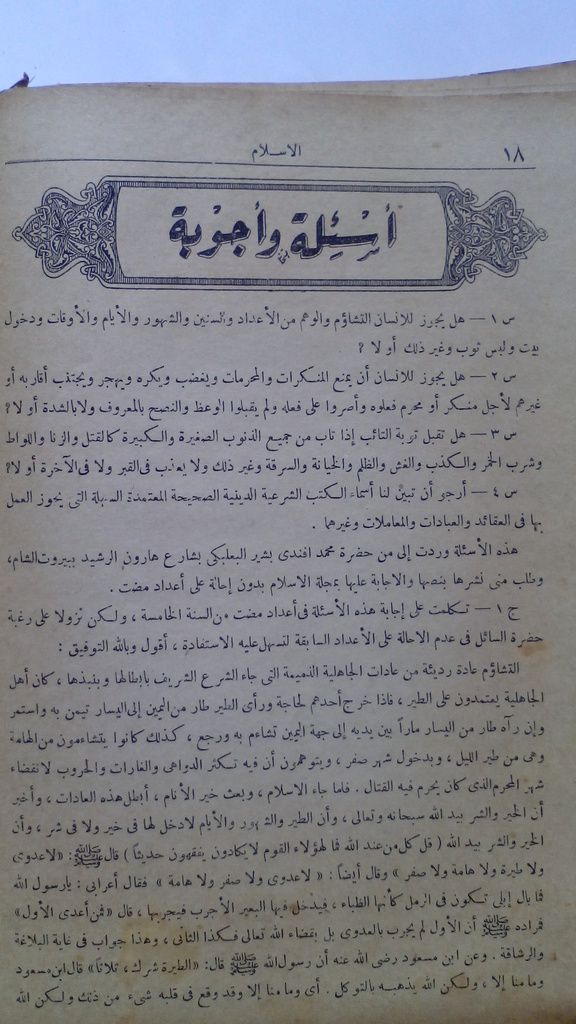 ١٨
الاسلام
أسئلة وأجوبة
س ١ — هل يجوز للانسان التشاؤم والوهم من الأعداد والسنين والشهور والأيام والأوقات ودخول
بيت ولبس ثوب وغير ذلك أو لا ؟
س ٢ — هل يجوز للانسان أن يمنع المنكرات والمحرمات ويغضب ويكره ويهجر ويجتنب أقاربه أو
غيرهم لأجل منكر أو محرم فعلوه وأصروا على فعله ولم يقبلوا الوعظ والنصح بالمعروف ولا بالشدة أو لا؟
س ٣ — هل تقبل توبة التائب إذا تاب من جميع الذنوب الصغيرة والكبيرة كالقتل والزنا واللواط
وشرب الخمر والكذب والغش والظلم والخيانة والسرقة وغير ذلك ولا يعذب فى القبر ولا فى الآخرة أو لا؟
س ٤ — أرجو أن تبين لنا أسماء الكتب الشرعية الدينية الصحيحة المعتمدة السهلة التى يجوز العمل
بها فى العقائد والعبادات والمعاملات وغيرها .
هذه الأسئلة وردت إلى من حضرة محمد افندى بشير البعلبكى بشارع هارون الرشيد ببيروت الشام،
وطلب منى نشرها بنصها والاجابة عليها بمجلة الاسلام بدون إحالة على أعداد مضت .
ج ١ — تكلمت على إجابة هذه الأسئلة فى أعداد مضت من السنة الخامسة ، ولكن نزولا على رغبة
حضرة السائل فى عدم الاحالة على الأعداد السابقة لتسهل عليه الاستفادة ، أقول وبالله التوفيق :
التشاؤم عادة رديئة من عادات الجاهلية الذميمة التى جاء الشرع الشريف بابطالها وبنبذها ، كان أهل
الجاهلية يعتمدون على الطير ، فاذا خرج أحدهم لحاجة ورأى الطير طار من اليمين إلى اليسار تيمن به واستمر
وإن رآه طار من اليسار ماراً بين يديه إلى جهة اليمين تشاءم به ورجع ، كذلك كانوا يتشاءمون من الهامة
وهى من طير الليل ، وبدخول شهر صفر ، ويتوهمون أن فيه تكثر الدواهى والغارات والحروب لانقضاء
شهر المحرم الذى كان يحرم فيه القتال . فلما جاء الاسلام ، وبعث خير الأنام ، أبطل هذه العادات ، وأخبر
أن الخير والشر بيد الله سبحانه وتعالى ، وأن الطير والشهور والأيام لا دخل لها فى خير ولا فى شر ، وأن
الخير والشر بيد الله ( قل كل من عند الله فما لهؤلاء القوم لا يكادون يفقهون حديثاً ) قال ﷺ : « لا عدوى
ولا طيرة ولا هامة ولا صفر » وقال أيضاً : « لا عدوى ولا صفر ولا هامة » فقال أعرابى : يا رسول الله
فما بال إبلى تكون فى الرمل كأنها الظباء ، فيدخل فيها البعير الأجرب فيجربها ، قال « فمن أعدى الأول»
فمراده ﷺ أن الأول لم يجرب بالعدوى بل بقضاء الله تعالى فكذا الثانى ، وهذا جواب فى غاية البلاغة
والرشاقة . وعن ابن مسعود رضى الله عنه أن رسول الله ﷺ قال: «الطيرة شرك، ثلاثاً» قال ابن مسعود
وما منا إلا ، ولكن الله يذهبه بالتوكل . أى وما منا إلا وقد وقع فى قلبه شىء من ذلك ولكن الله